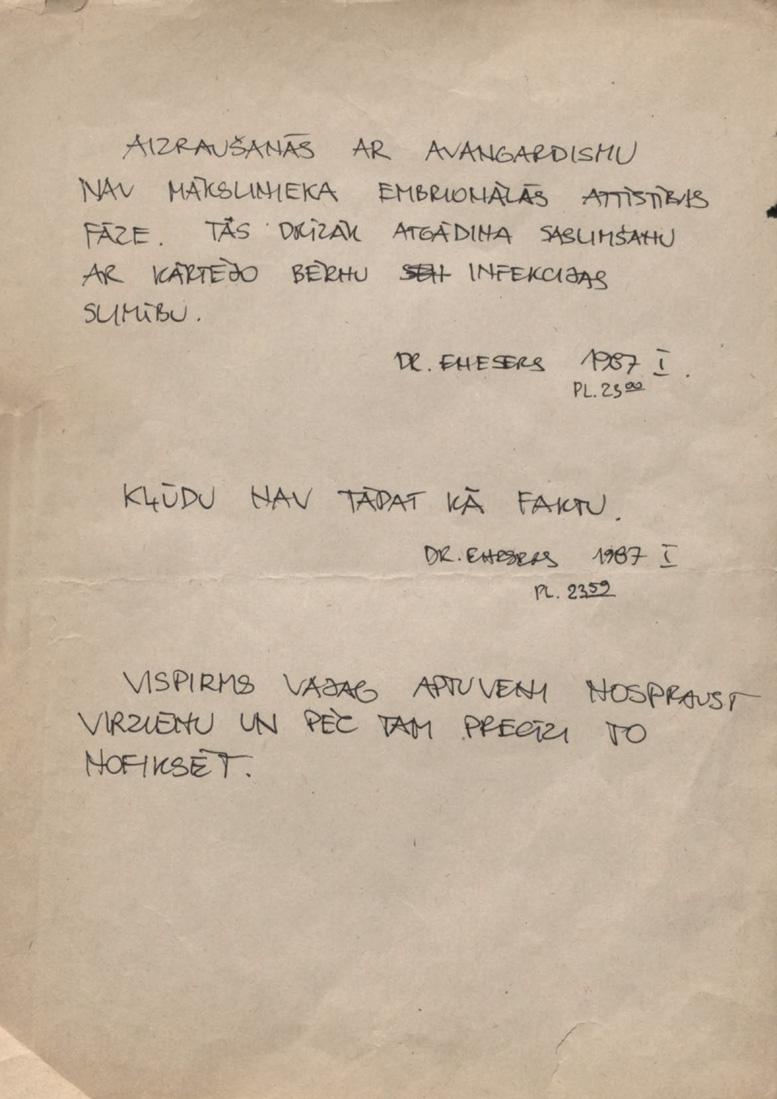 AIZRAUŠANĀS AR AVANGARDISMU
NAV MĀKSLINIEKA EMBRIONĀLĀS ATTĪSTĪBAS
FĀZE. TĀS DRĪZĀK ATGĀDINA SASLIMŠANU
AR KĀRTĒJO BĒRNU INFEKCIJAS
SLIMĪBU.
DR. ENESERS 1987 I.
PL. 23⁰⁰
KĻŪDU NAV TĀPAT KĀ FAKTU.
DR. ENESERS 1987 I
PL. 23⁵⁹
VISPIRMS VAJAG APTUVENI NOSPRAUST
VIRZIENU UN PĒC TAM PRECĪZI TO
NOFIKSĒT.